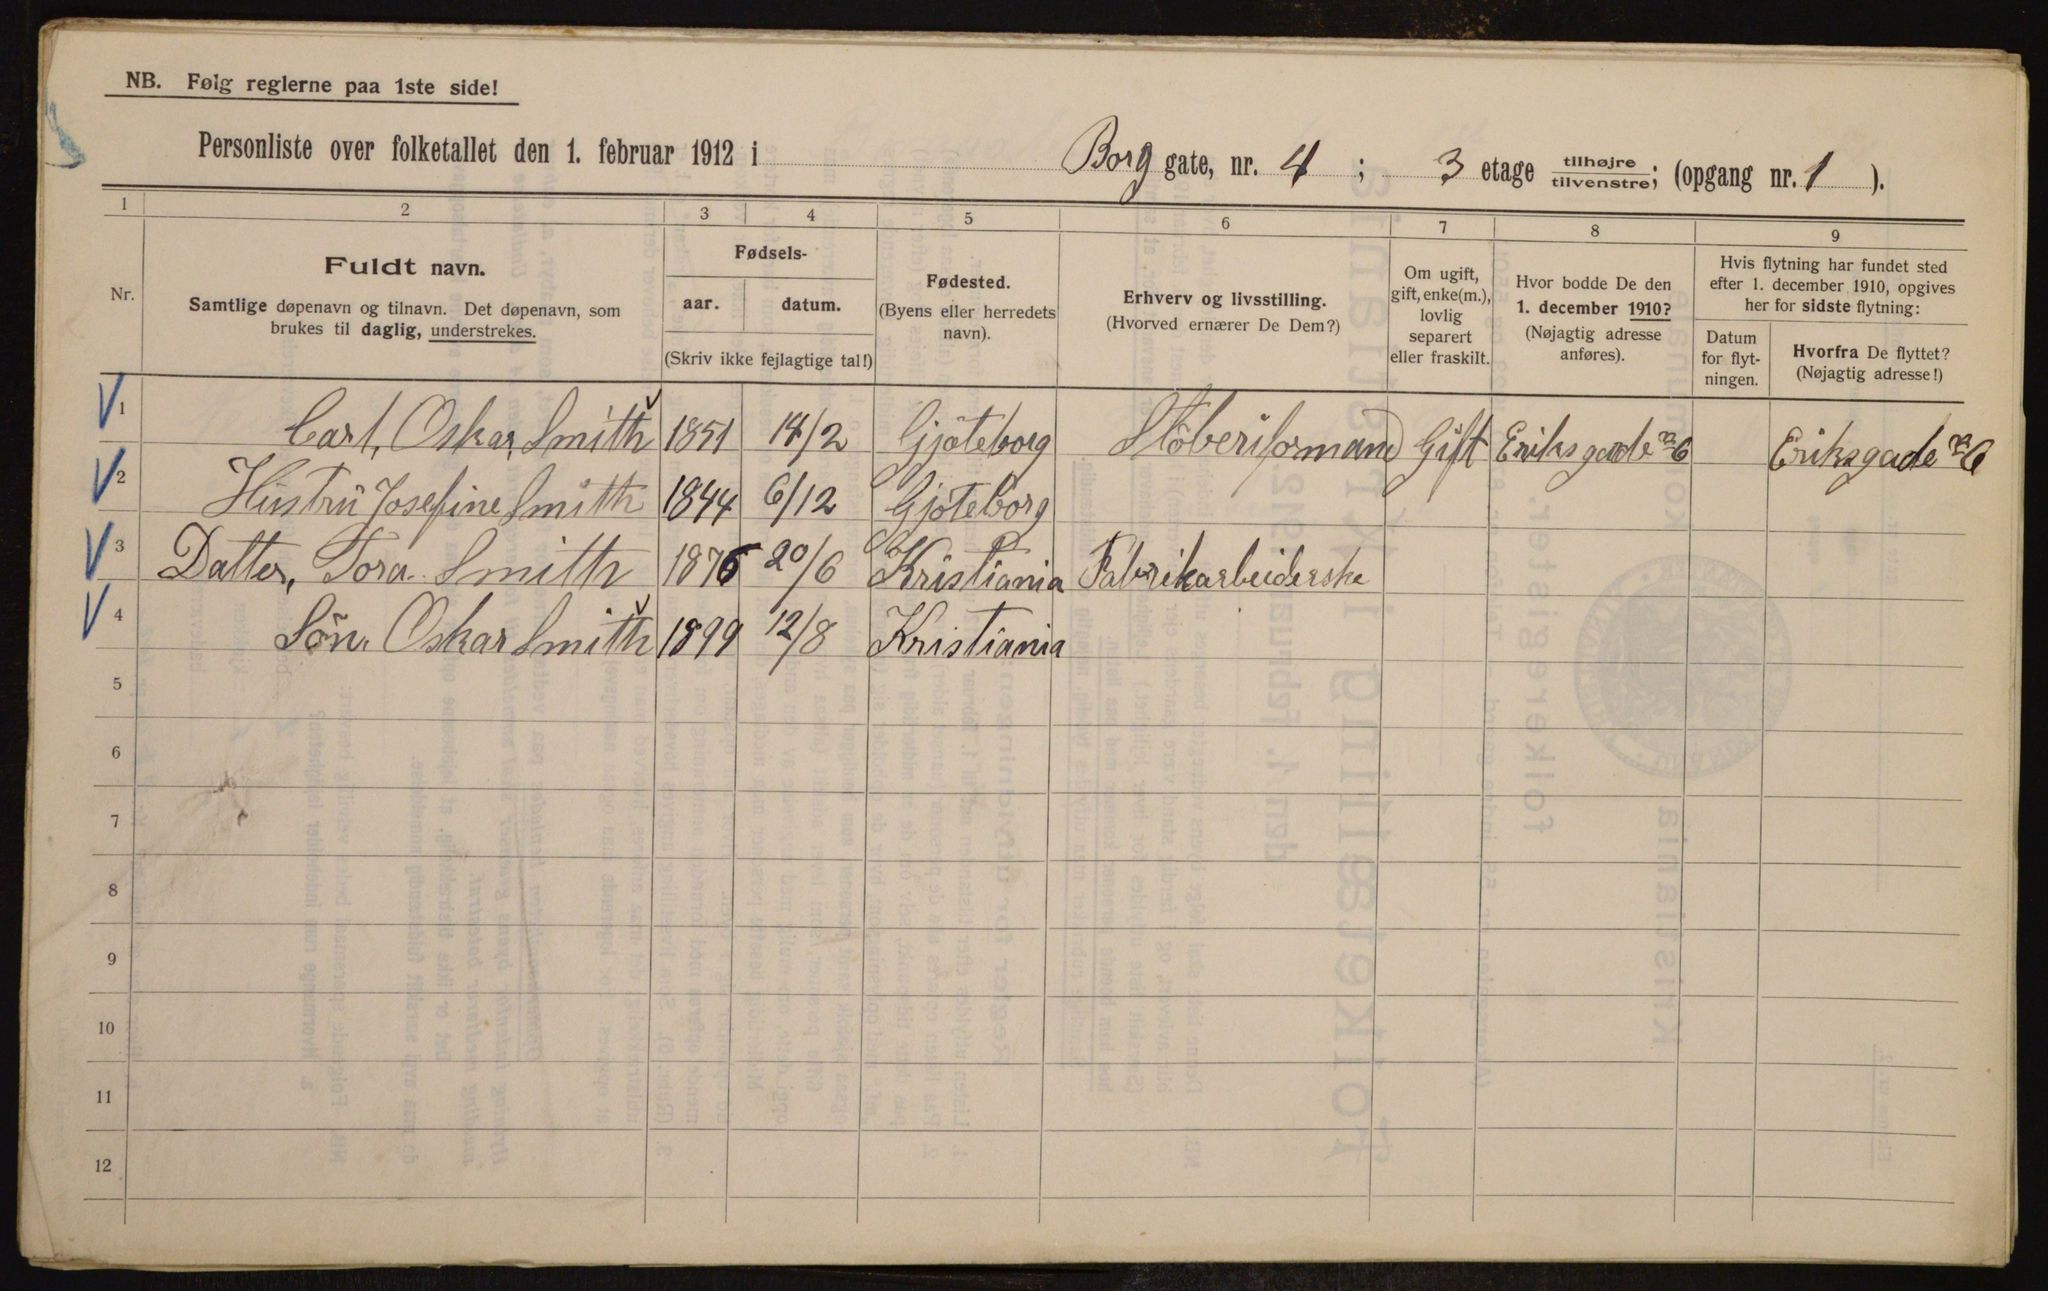 NB. Følg reglerne paa 1ste side!
Personliste over folketallet den 1. februar 1912 i Borg gate, nr. 4 ; 3 etage tilhøjre / tilvenstre; (opgang nr. 1 ).
1 2 3 4 5 6 7 8 9
Nr.
Fuldt navn.
Samtlige døpenavn og tilnavn. Det døpenavn, som
brukes til daglig, understrekes.
Fødsels-
aar. datum.
(Skriv ikke fejlagtige tal!)
Fødested.
(Byens eller herredets
navn).
Erhverv og livsstilling.
(Hvorved ernærer De Dem?)
Om ugift,
gift, enke(m.),
lovlig
separert
eller fraskilt.
Hvor bodde De den
1. december 1910?
(Nøjagtig adresse
anføres).
Hvis flytning har fundet sted
efter 1. december 1910, opgives
her for sidste flytning:
Datum
for flyt-
ningen.
Hvorfra De flyttet?
(Nøjagtig adresse!)
1 Carl, Oskar, Smith 1851 14/2 Gjöteborg Stöberiformand Gift Eriksgade No 6 Eriksgade No 6
2 Hustru Josefine Smith 1844 6/12 Gjöteborg
3 Datter, Tora Smith 1876 20/6 Kristiania Fabrikarbeiderske
4 Sön. Oskar Smith 1899 12/8 Kristiania
5
6
7
8
9
10
11
12